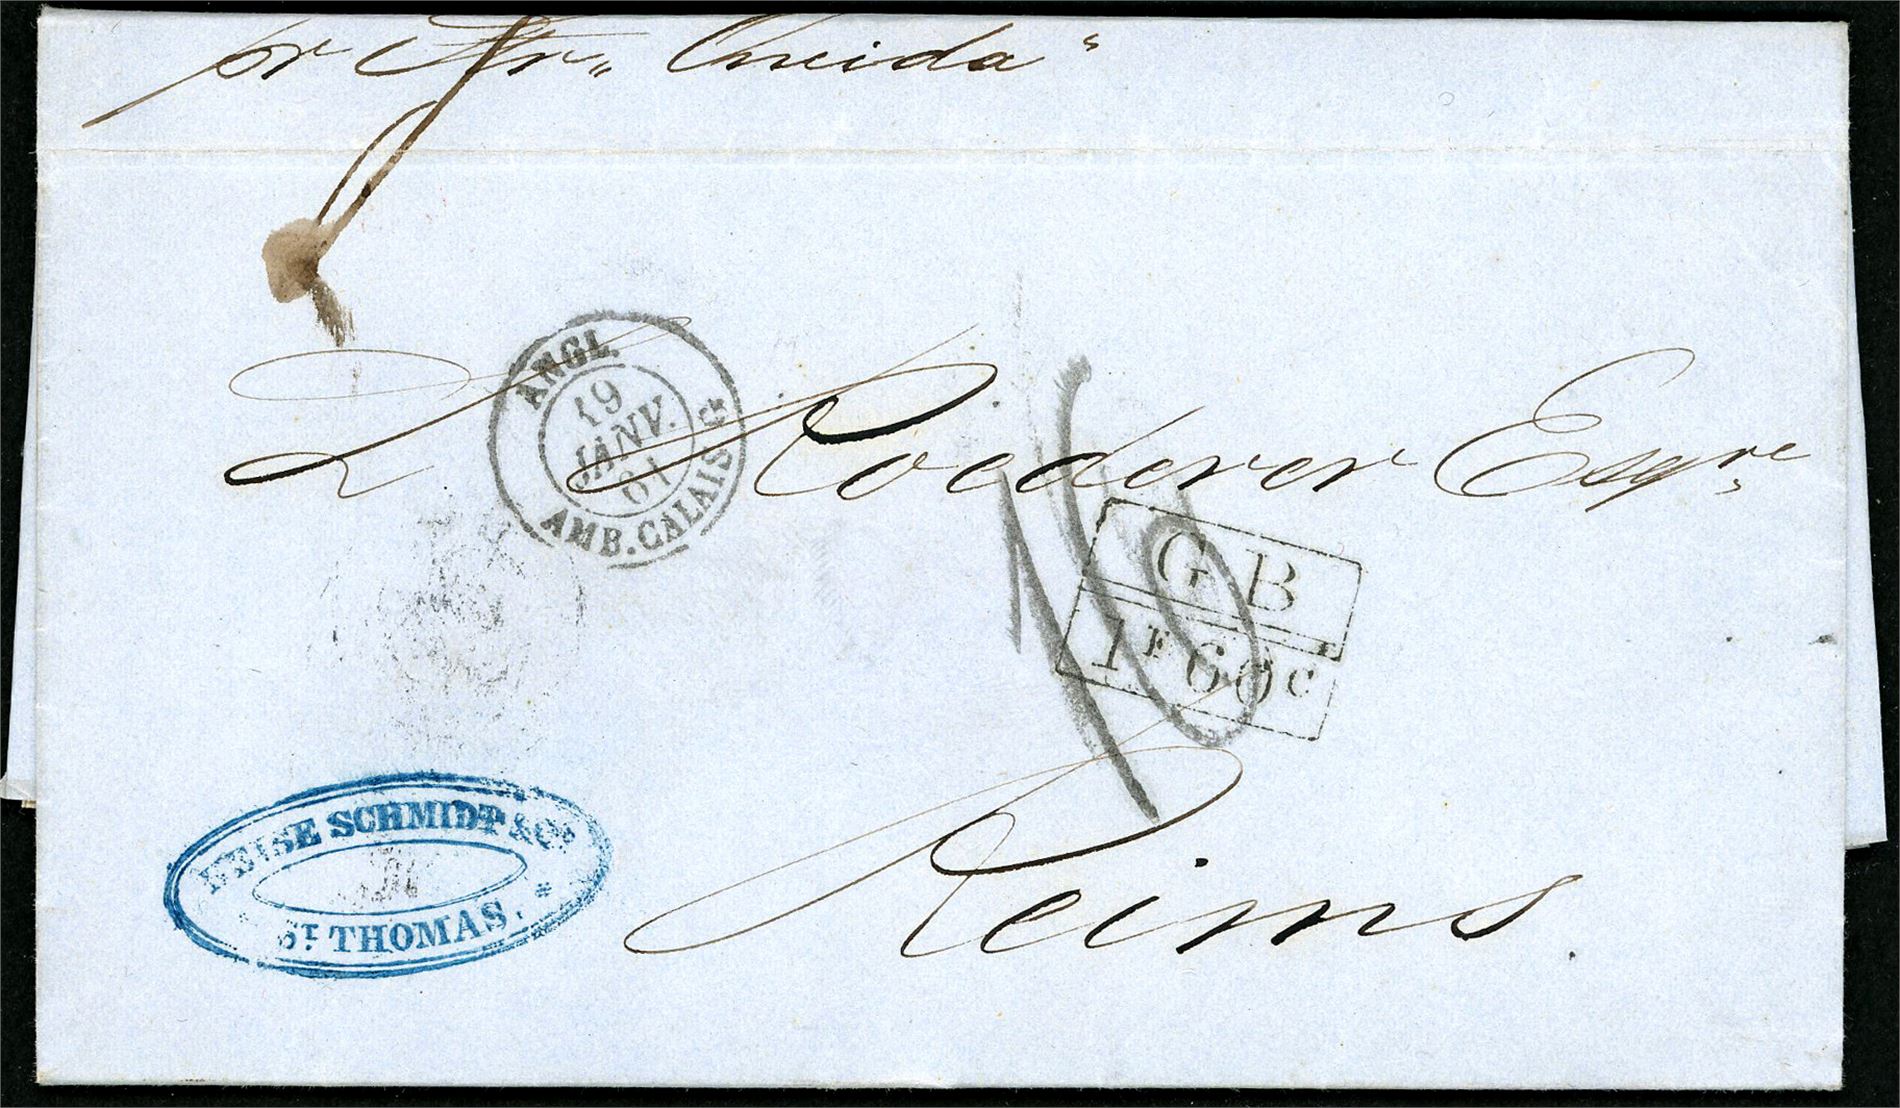 pr Str„ Oneida"
ANGL.
19
JANV.
61
AMB. CALAIS G
L Roederer Esqre
16
G B
1F60C
Reims.
HEISE SCHMIDT & Co
ST THOMAS.